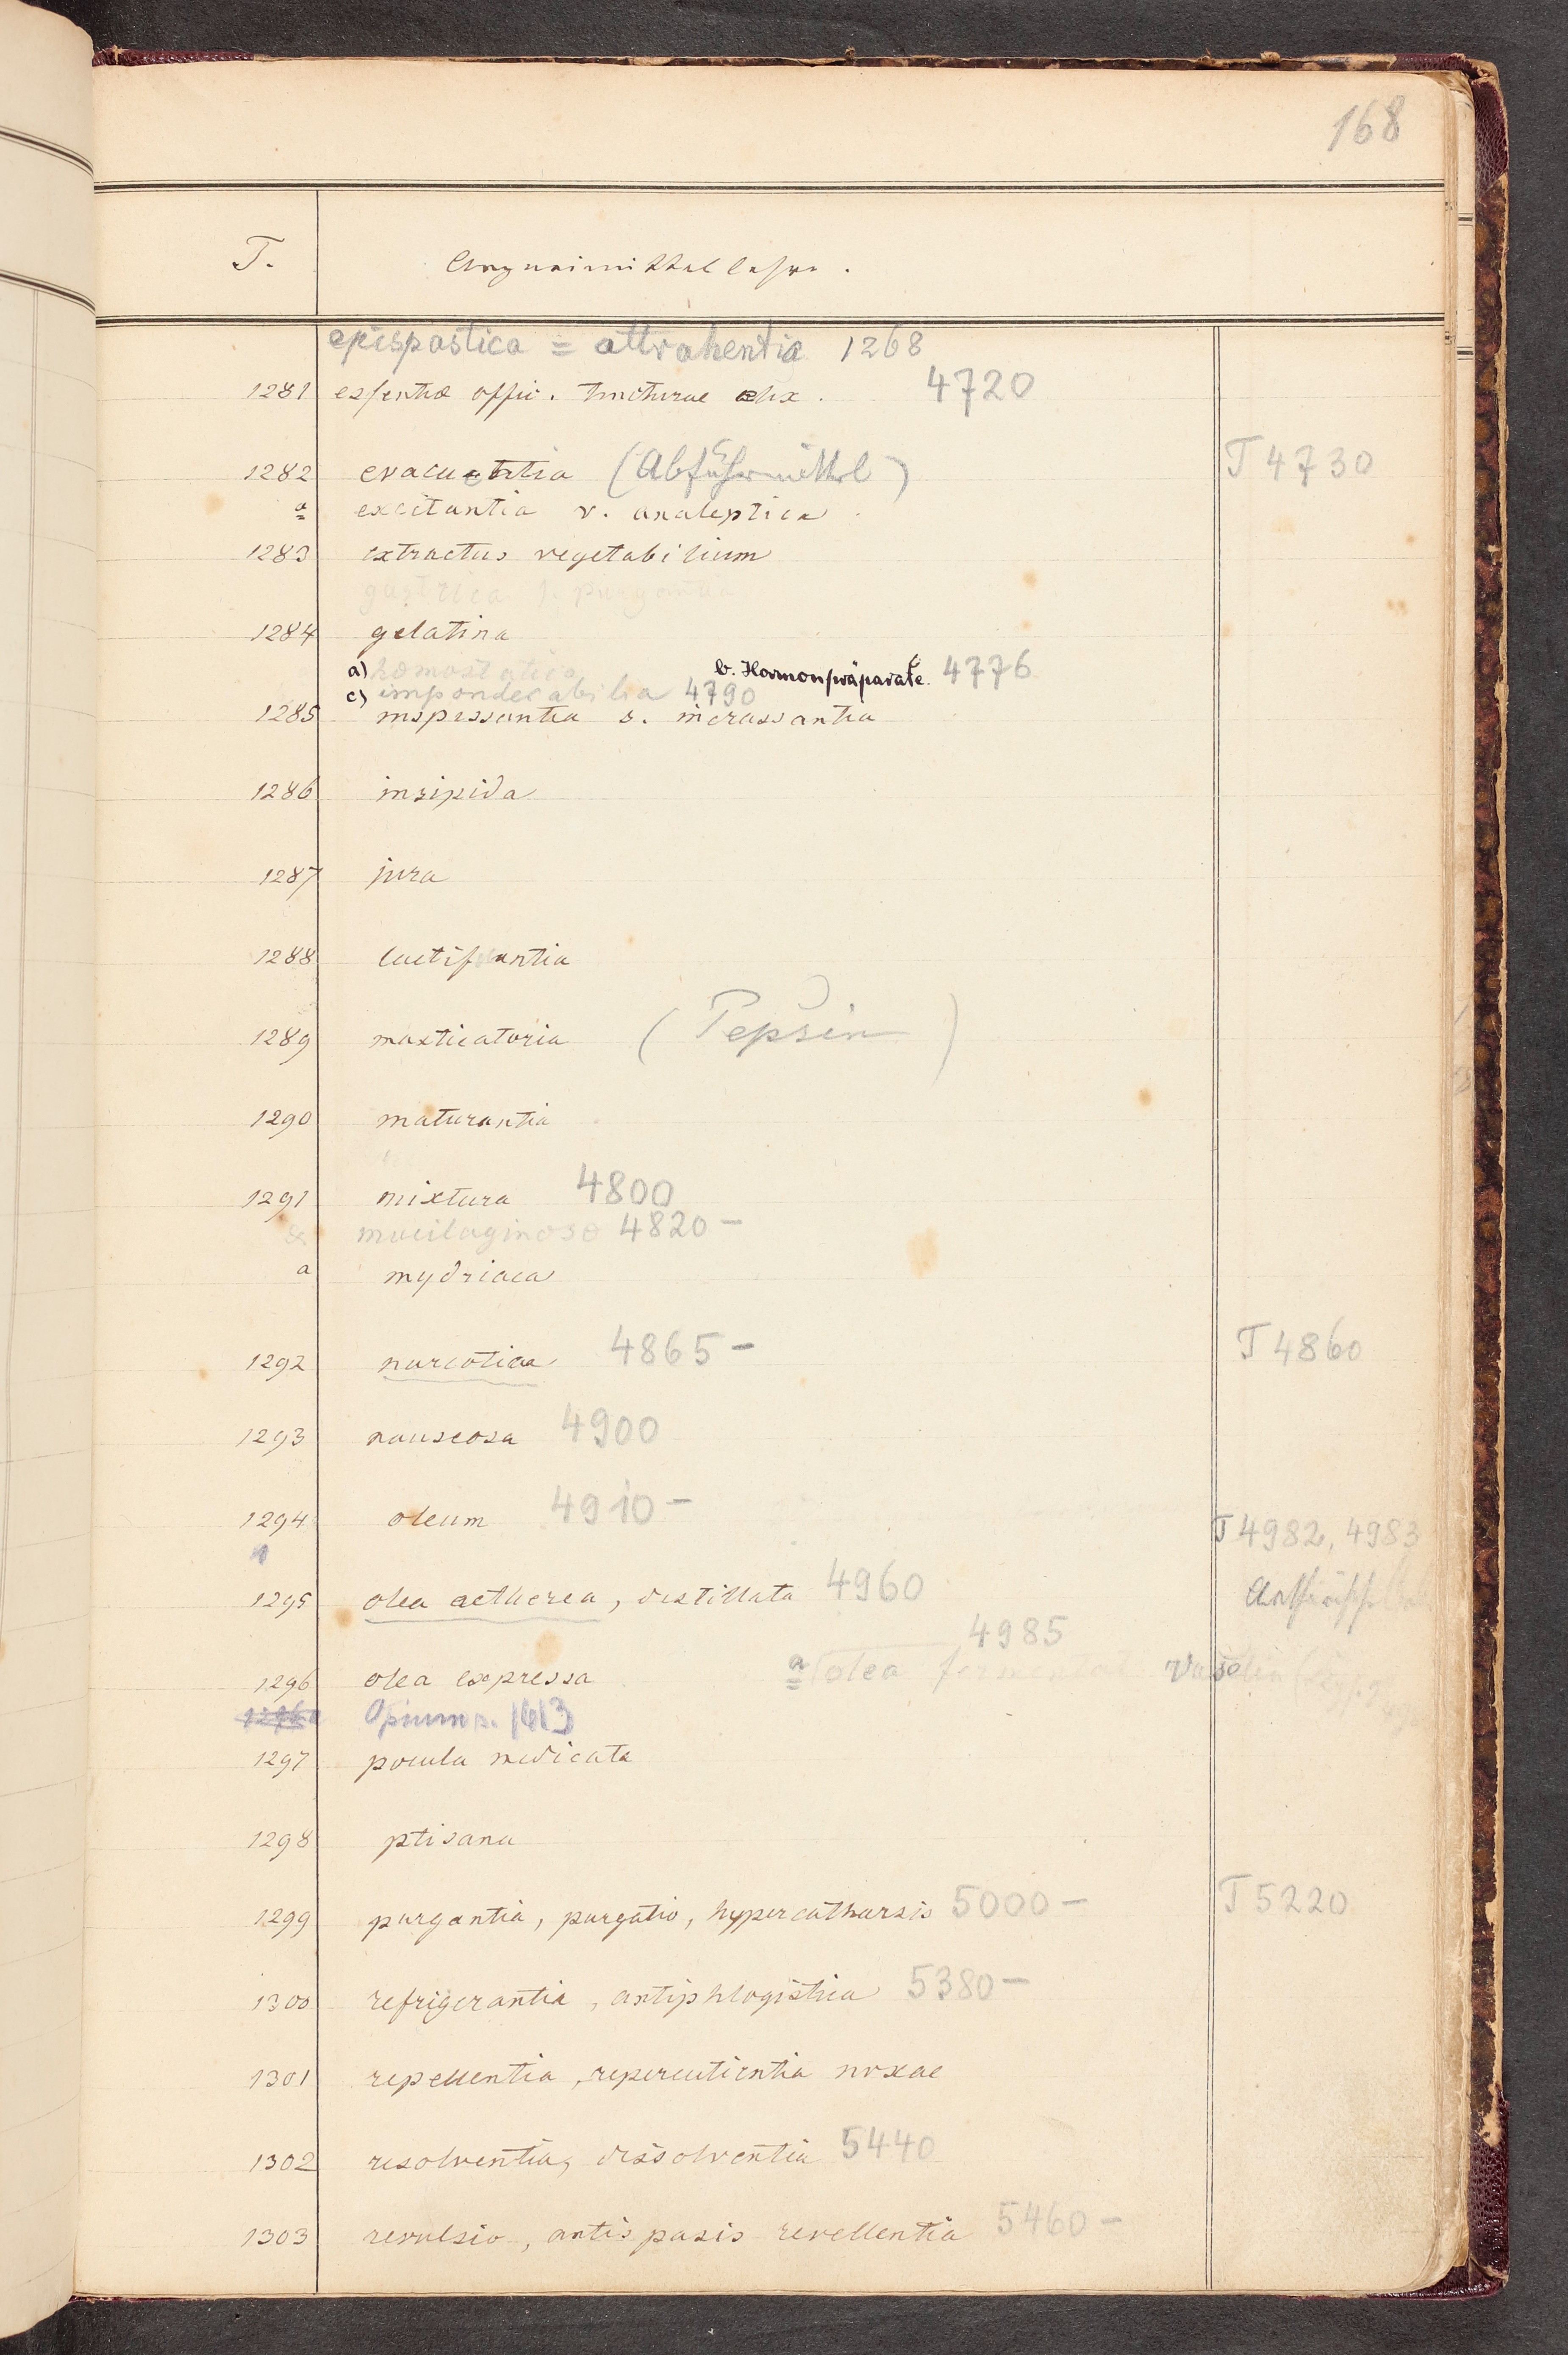 168
T. Arzneimittellehre.
epispastica = attrahentia 1268
1281 essentiae offic. tincturae elix. 4720
1282 evacuantia (Abführmittel) T 4730
a excitantia v. analeptica
1283 extractus vegetabilium
gastrica s. purgantia
1284 gelatina
a) hämostatica b. Hormonpräparate. 4776
c) imponderabilia 4790
1285 inspissantia s. incrassantia
1286 insipida
1287 jura
1288 lactificantia
1289 masticatoria (Pepsin)
1290 maturantia
1291 mixtura 4800
mucilaginosa 4820 –
a mydriaca
1292 narcotica 4865 – T 4860
1293 nauseosa 4900
1294 oleum 4910 –
T 4982, 4983
1295 olea aetherea, destillata 4960 Aetherische
4985
1296 olea expressa a olea
Opium s. 1413
1297 pocula medicata
1298 ptisana
1299 purgantia, purgatio, hypercatharsis 5000 – T 5220
1300 refrigerantia, antiphlogistica 5380 –
1301 repellentia, repercutientia noxae
1302 resolventia, dissolventia 5440
1303 revulsio, antispasis revellentia 5460 –